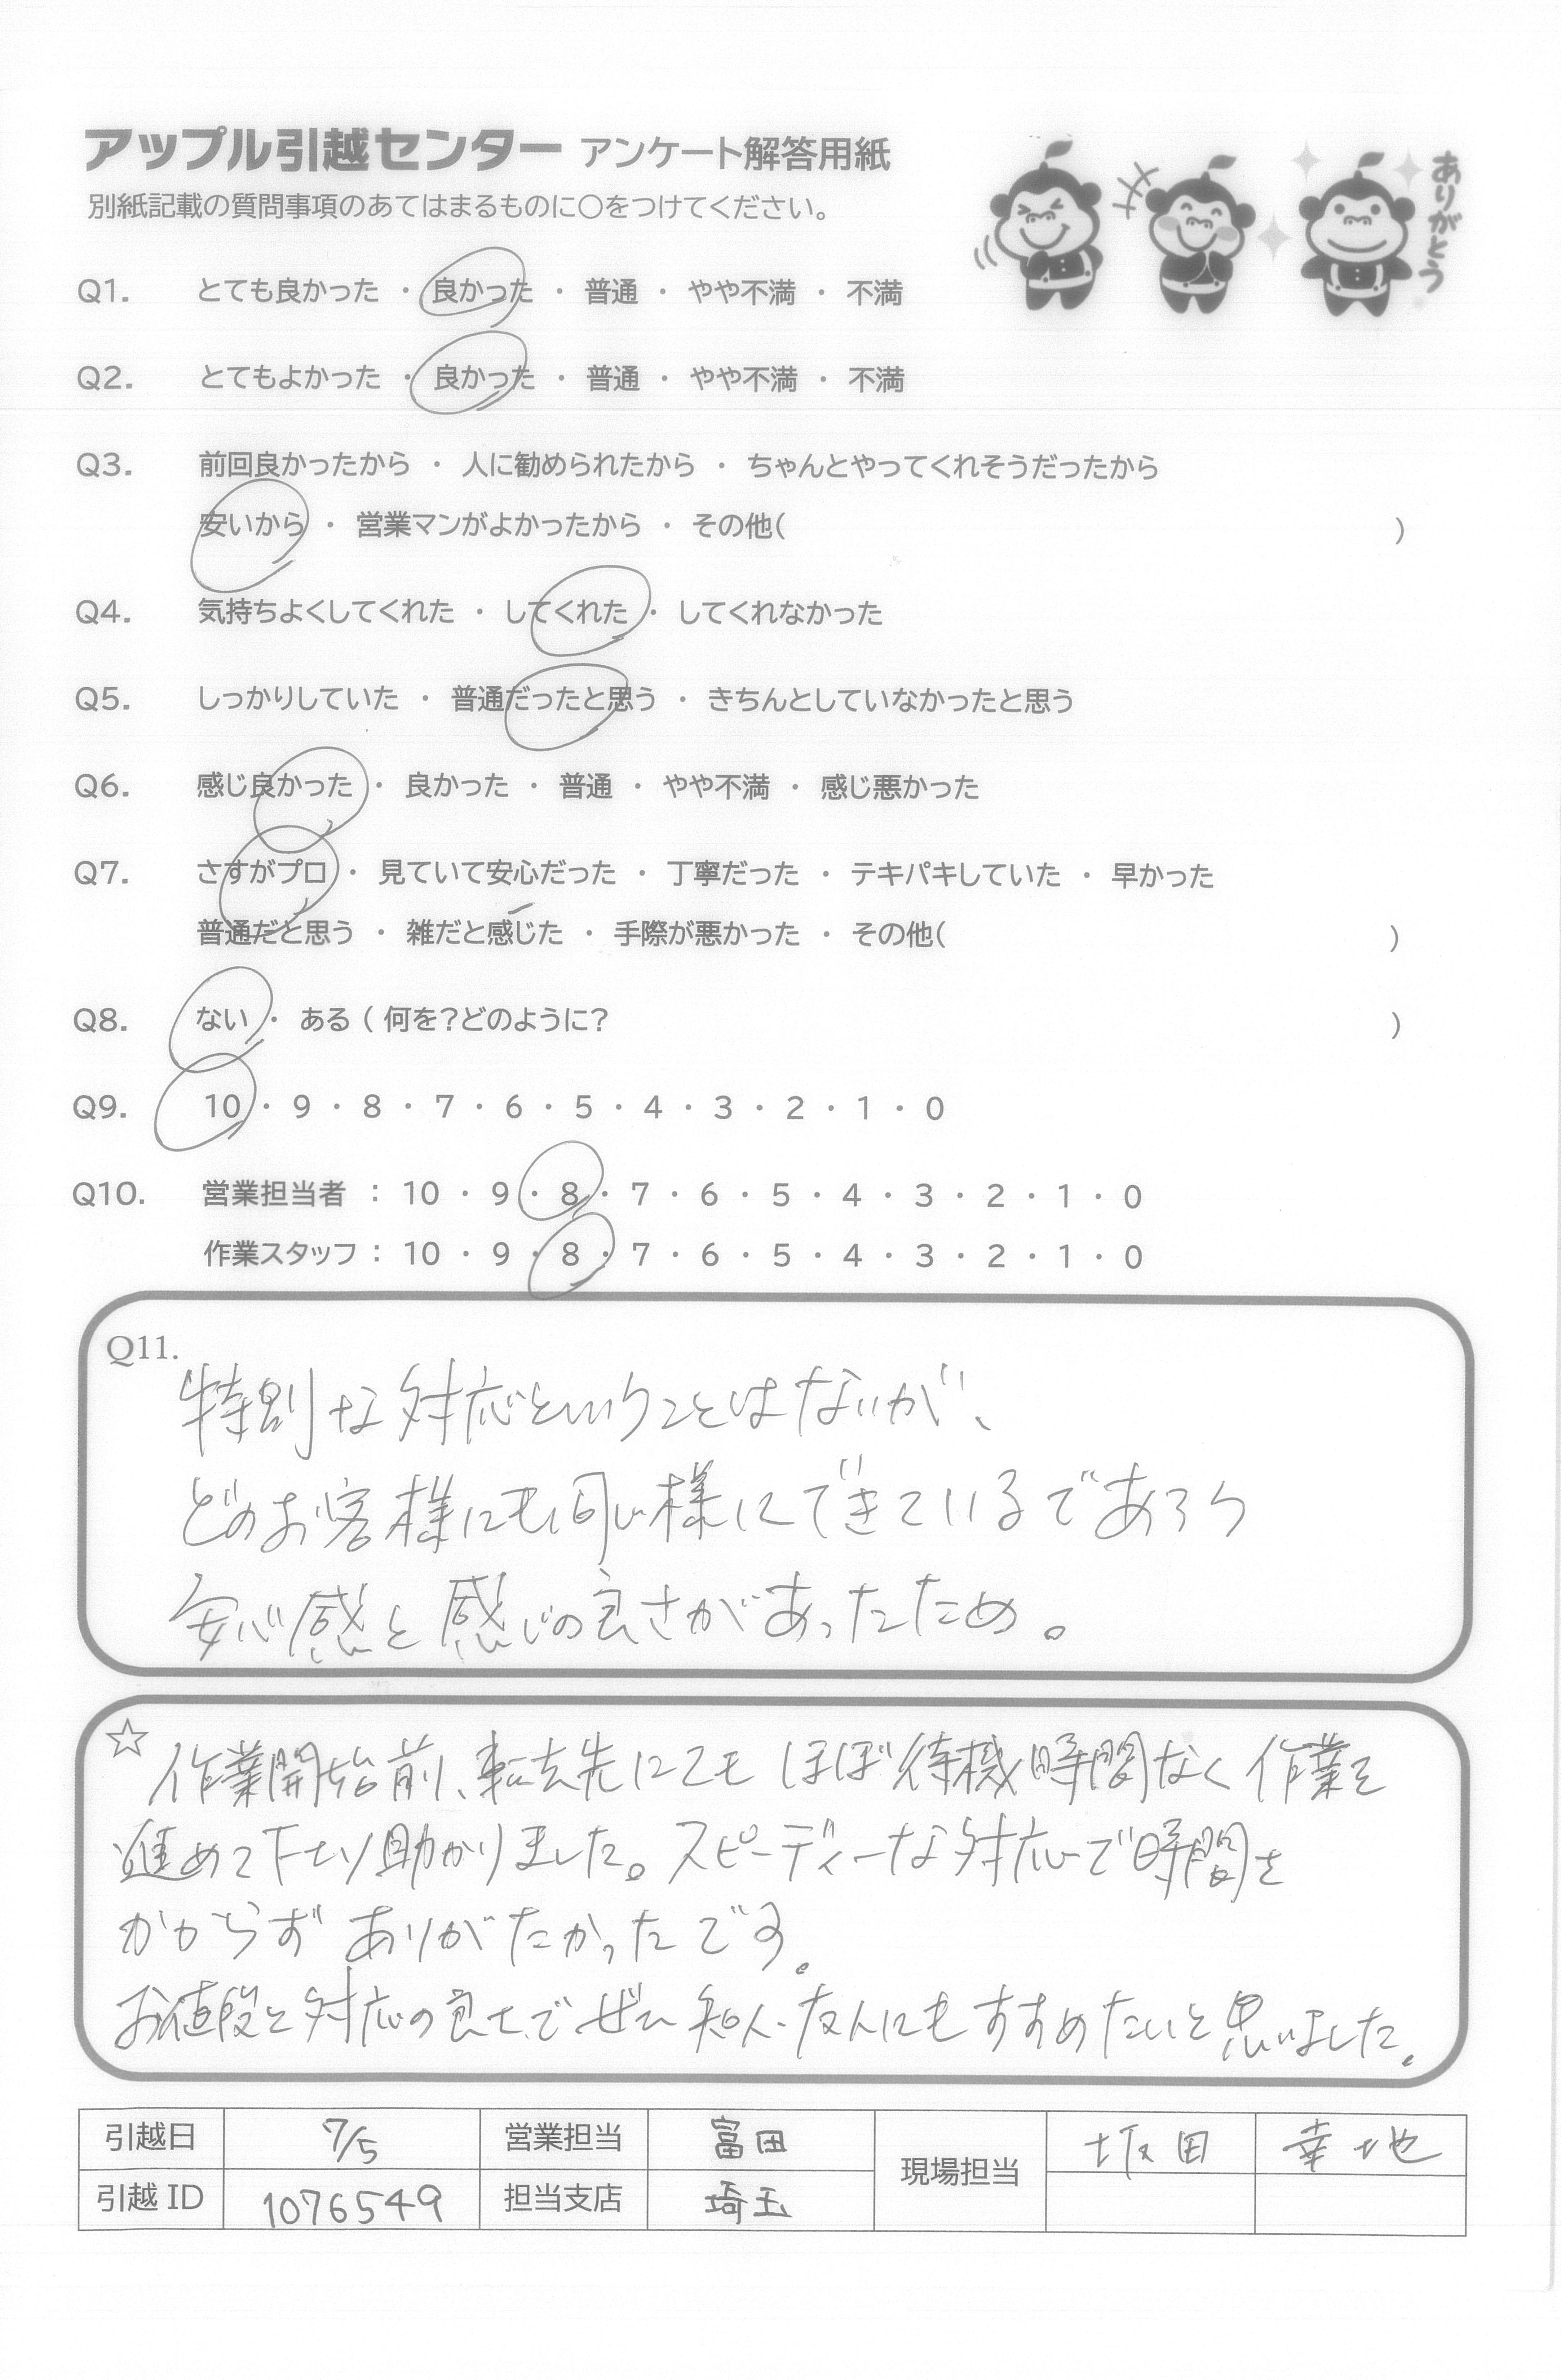 アップル引越センター アンケート解答用紙
別紙記載の質問事項のあてはまるものに○をつけてください。
ありがとう
Q1. とても良かった ・ 良かった ・ 普通 ・ やや不満 ・ 不満
Q2. とてもよかった ・ 良かった ・ 普通 ・ やや不満 ・ 不満
Q3. 前回良かったから ・ 人に勧められたから ・ ちゃんとやってくれそうだったから
安いから ・ 営業マンがよかったから ・ その他( )
Q4. 気持ちよくしてくれた ・ してくれた ・ してくれなかった
Q5. しっかりしていた ・ 普通だったと思う ・ きちんとしていなかったと思う
Q6. 感じ良かった ・ 良かった ・ 普通 ・ やや不満 ・ 感じ悪かった
Q7. さすがプロ ・ 見ていて安心だった ・ 丁寧だった ・ テキパキしていた ・ 早かった
普通だと思う ・ 雑だと感じた ・ 手際が悪かった ・ その他( )
Q8. ない ・ ある ( 何を?どのように? )
Q9. 10 ・ 9 ・ 8 ・ 7 ・ 6 ・ 5 ・ 4 ・ 3 ・ 2 ・ 1 ・ 0
Q10. 営業担当者 : 10 ・ 9 ・ 8 ・ 7 ・ 6 ・ 5 ・ 4 ・ 3 ・ 2 ・ 1 ・ 0
作業スタッフ : 10 ・ 9 ・ 8 ・ 7 ・ 6 ・ 5 ・ 4 ・ 3 ・ 2 ・ 1 ・ 0
Q11.
特別な対応ということはないが、
どのお客様にも同じ様にできているであろう
安心感と感じの良さがあったため。
☆ 作業開始前、転去先にてもほぼ待機時間なく作業を
進めて下さり助かりました。スピーディーな対応で時間を
かからずありがたかったです。
お値段と対応の良さでぜひ知人・友人にもすすめたいと思いました。
引越日 7/5 営業担当 富田 現場担当 坂田 幸地
引越ID 1076549 担当支店 埼玉